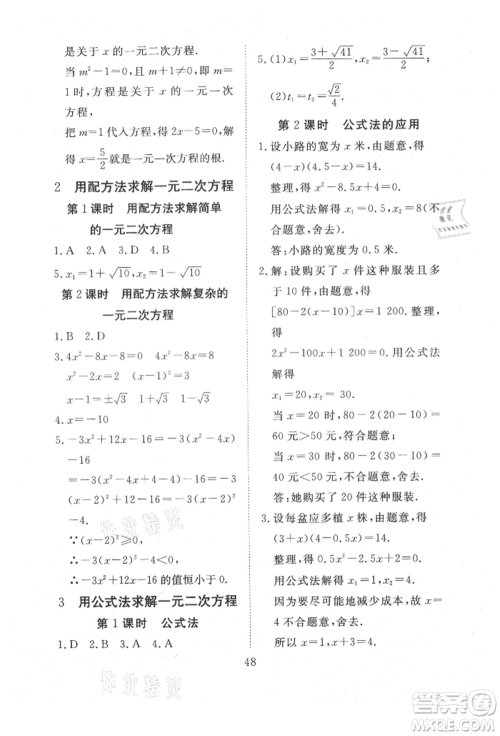 是关于 x 的一元二次方程.
当 m²-1=0,且 m+1≠0,即 m=
1 时,方程是关于 x 的一元一次方
程,
把 m=1 代入方程,得 2x-5=0,
x=5/2就是一元一次方程的根.
2 用配方法求解一元二次方程
第 1 课时 用配方法求解简单
的一元二次方程
1. A 2. A 3. D 4. D
5. x₁=1+√10,x₂=1-√10
第 2 课时 用配方法求解复杂的
一元二次方程
1. B 2. D
3. 4x²-8x-8=0 4x²-8x=8
x²-2x=2 x²-2x+1=3
x-1=±√3 1±√3
4. x=-10
5. -3x²+12x-16=-3(x²-4x)
-16
=-3(x-2)²+12-16
=-3(x-2)²-4.
∵(x-2)²≥0,
∴-3(x-2)²≤0,
∴-3(x-2)²-4<0.
∴-3x²+12x-16 的值恒小于 0.
3 用公式法求解一元二次方程
第 1 课时 公式法
1. D 2. A 3. A 4. A
5. (1)x₁=(3+√41)/2,x₂=(3-√41)/2;
(2)t₁=t₂=√2/4.
第 2 课时 公式法的应用
1. 设小路的宽为 x 米,由题意,得
(4-x)(4-3x)=8.75.
整理,得 3x²-16x+7.25=0.
用公式法解得 x₁=0.5,x₂=29/6
(不合题意,舍去).
答:小路的宽度为 0.5 米.
2. 解:设购买了 x 件这种服装且多
于 10 件,由题意,得
[80-2(x-10)]x=1 200.整理,
得 2x²-100x+1 200=0.用公式法
解得
x₁=20,x₂=30.
当 x=20 时,80-2(20-10)=
60 元>50 元,符合题意;
当 x=30 时,80-2(30-10)=
40 元<50 元,不合题意,舍去.
答:她购买了 20 件这种服装.
3. 设每盆应多植 x 株,由题意,得
(3+x)(4-0.5x)=14.
整理,得 0.5x²-2.5x+2=0.
用公式法解得 x₁=1,x₂=4.
因为要尽可能地节约成本,不合题
意,舍去,
所以 x=1.
48
作业精灵
作业精灵
答案圈
MXQE.COM